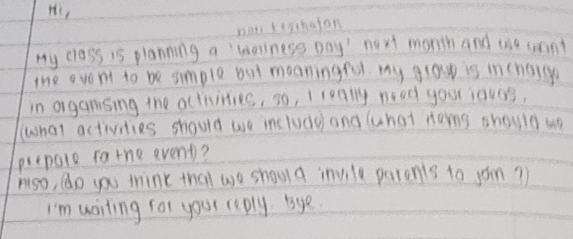 Hi,
hari kesihatan
My class is planning a 'wellness Day' next month and we want
the event to be simple but meaningful. My group is in charge
in organising the activities, so, I really need your ideas.
(what activities should we include) and (what items should we
prepare for the event)?
Also, (do you think that we should invite parents to join?)
I'm waiting for your reply. Bye.